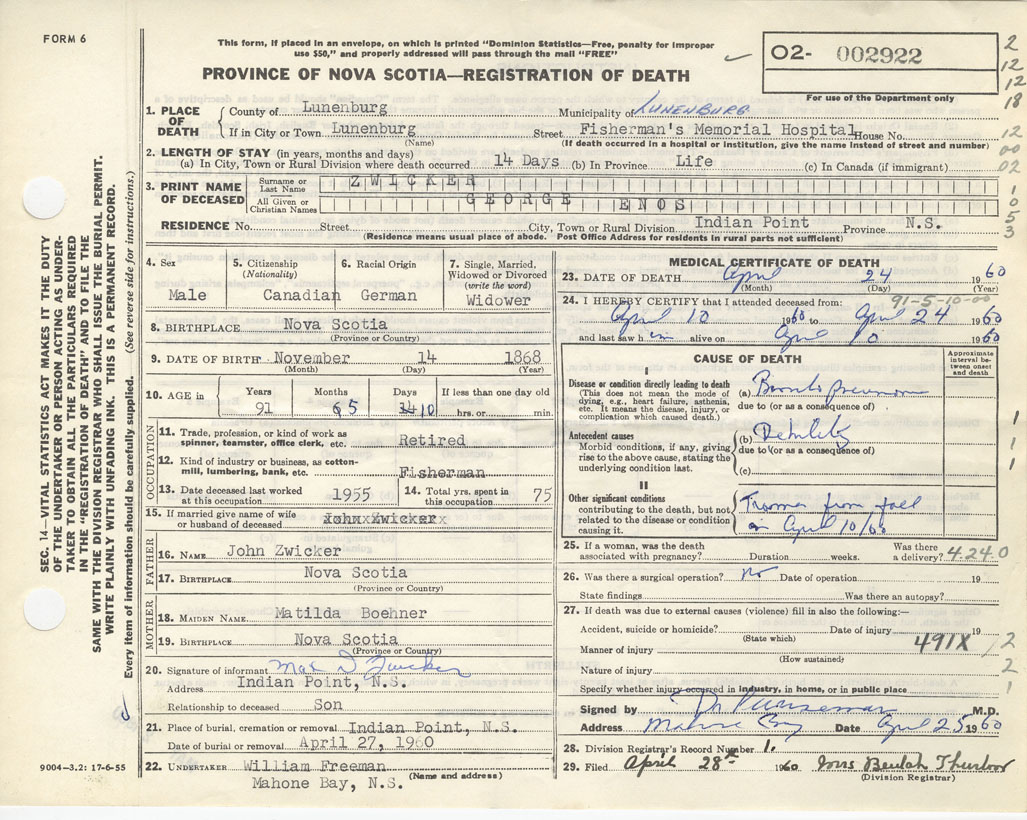 FORM 6
This form, if placed in an envelope, on which is printed "Dominion Statistics—Free, penalty for improper
use $50," and properly addressed will pass through the mail "FREE"
PROVINCE OF NOVA SCOTIA—REGISTRATION OF DEATH
O2- 002922
For use of the Department only
2
12
12
18
1. PLACE OF DEATH County of Lunenburg Municipality of LUNENBURG
If in City or Town Lunenburg Street Fisherman's Memorial Hospital House No. 12
(Name) (If death occurred in a hospital or institution, give the name instead of street and number) 00
2. LENGTH OF STAY (in years, months and days)
(a) In City, Town or Rural Division where death occurred 14 Days (b) In Province Life (c) In Canada (if immigrant) 02
3. PRINT NAME OF DECEASED Surname or Last Name ZWICKER 1
All Given or Christian Names GEORGE ENOS 0
5
RESIDENCE No. Street City, Town or Rural Division Indian Point Province N.S. 3
(Residence means usual place of abode. Post Office Address for residents in rural parts not sufficient)
SEC. 14—VITAL STATISTICS ACT MAKES IT THE DUTY
OF THE UNDERTAKER OR PERSON ACTING AS UNDER-
TAKER TO OBTAIN ALL THE PARTICULARS REQUIRED
IN THE "REGISTRATION OF DEATH" AND FILE THE
SAME WITH THE DIVISION REGISTRAR WHO SHALL ISSUE THE BURIAL PERMIT.
WRITE PLAINLY WITH UNFADING INK. THIS IS A PERMANENT RECORD.
Every item of information should be carefully supplied. (See reverse side for instructions.)
4. Sex 5. Citizenship (Nationality) 6. Racial Origin 7. Single, Married, Widowed or Divorced (write the word)
Male Canadian German Widower
8. BIRTHPLACE Nova Scotia
(Province or Country)
9. DATE OF BIRTH November 14 1868
(Month) (Day) (Year)
10. AGE in Years Months Days If less than one day old
91 6 5 14 10 hrs. or min.
OCCUPATION
11. Trade, profession, or kind of work as
spinner, teamster, office clerk, etc. Retired
12. Kind of industry or business, as cotton-
mill, lumbering, bank, etc. Fisherman
13. Date deceased last worked
at this occupation 1955
14. Total yrs. spent in
this occupation 75
15. If married give name of wife
or husband of deceased John Zwicker
FATHER
16. NAME John Zwicker
17. BIRTHPLACE Nova Scotia
(Province or Country)
MOTHER
18. MAIDEN NAME Matilda Boehner
19. BIRTHPLACE Nova Scotia
(Province or Country)
20. Signature of informant Zwicker
Address Indian Point, N.S.
Relationship to deceased Son
21. Place of burial, cremation or removal Indian Point, N.S.
Date of burial or removal April 27, 1960
22. UNDERTAKER William Freeman
Mahone Bay, N.S. (Name and address)
9004—3.2: 17-6-55
MEDICAL CERTIFICATE OF DEATH
23. DATE OF DEATH April 24 1960
(Month) (Day) (Year)
24. I HEREBY CERTIFY that I attended deceased from: 91-5-10-00
April 10 1960 to April 24 1960
and last saw him alive on April 10 1960
CAUSE OF DEATH
Approximate interval between onset and death
I
Disease or condition directly leading to death
(This does not mean the mode of dying, e.g., heart failure, asthenia, etc. It means the disease, injury, or complication which caused death.)
(a) Bronchopneumonia
due to (or as a consequence of)
Antecedent causes
Morbid conditions, if any, giving rise to the above cause, stating the underlying condition last.
(b) Debility
due to (or as a consequence of)
(c)
1
1
1
II
Other significant conditions
contributing to the death, but not related to the disease or condition causing it.
from fall
on April 10/60
25. If a woman, was the death
associated with pregnancy? Duration weeks. Was there a delivery? 4.24.0
26. Was there a surgical operation? No Date of operation 19
State findings Was there an autopsy?
27. If death was due to external causes (violence) fill in also the following:—
Accident, suicide or homicide? Date of injury 19
(State which)
Manner of injury 491X 12
(How sustained)
Nature of injury 2
Specify whether injury occurred in industry, in home, or in public place 1
Signed by M.D.
Address Mahone Bay Date April 25 1960
28. Division Registrar's Record Number 1.
29. Filed April 28th 1960 Mrs Beulah
(Division Registrar)